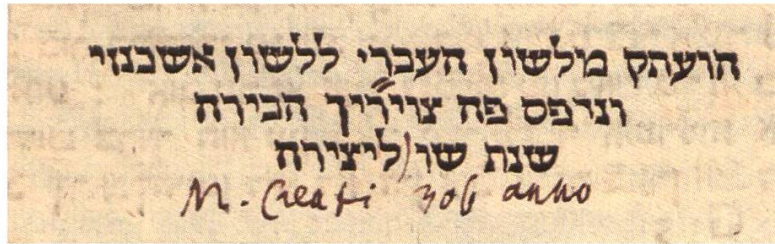 הועתק מלשון העברי ללשון אשכנזי
ונדפס פה צויריך הבירה
שנת שו ליצירה
M. Creati 306 anno